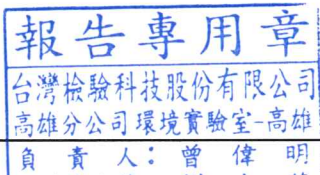 報告專用章
台灣檢驗科技股份有限公司
高雄分公司環境實驗室-高雄
負責人：曾偉明